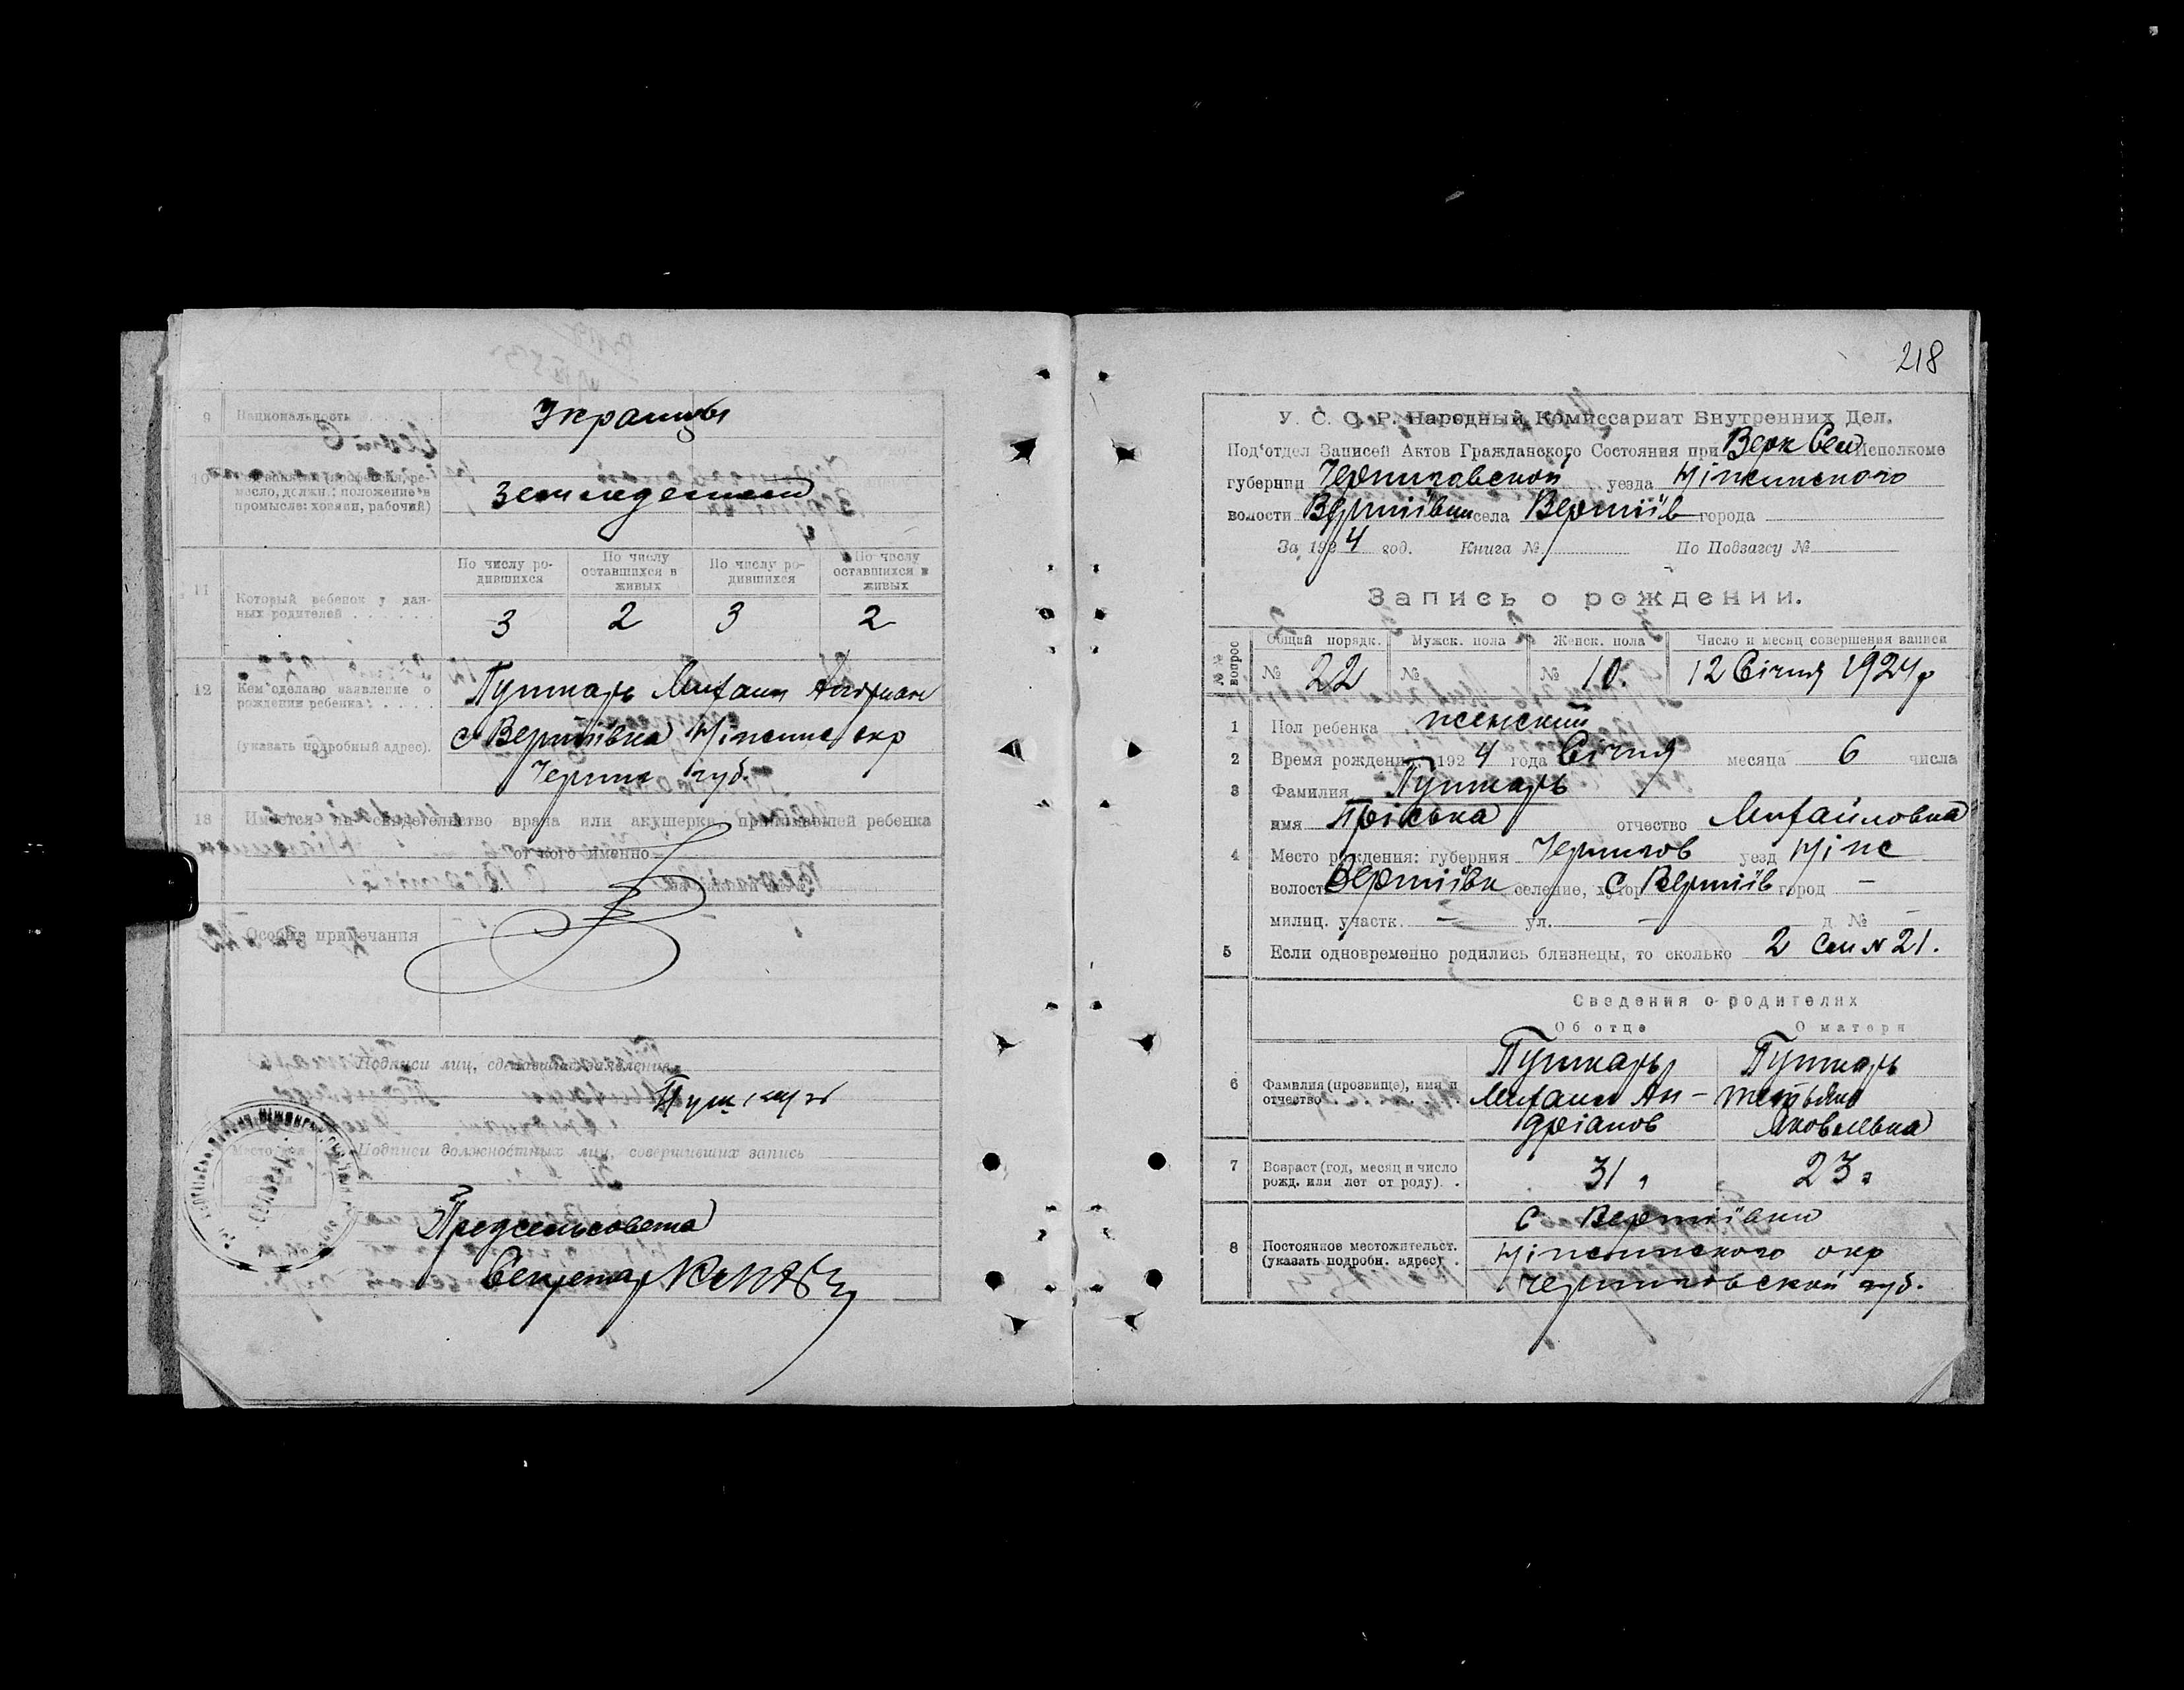 9 Национальность
Украинцы
10
месло, должн.; положение в
промысле: хозяин, рабочий)
11
По числу ро-
дившихся
По числу
оставшихся в
живых
По числу ро-
дившихся
По числу
оставшихся в
живых
Который ребенок у дан-
ных родителей
3 2 3 2
12 Кем сделано заявление о
рождении ребенка:
(указать подробный адрес).
Пушкарь Михаил Андриан
с Вертіївка Ніженс окр
Черниг губ.
13 Имеется ли свидетельство врача или акушерки, принимавшей ребенка
от кого именно
Особые примечания
Подписи лиц, сделавших заявление
Пушкарь
Подписи должностных лиц, совершивших запись
Предсельсовета
Секретарь
218
У. С. С. Р. Народный Комиссариат Внутренних Дел.
Под'отдел Записей Актов Гражданского Состояния при Исполкоме
губернии Черниговской уезда Ніжинского
волости Вертіївки села Вертіїв города
За 1924 год. Книга № По Подзагсу №
Запись о рождении.
№№ вопрос
Общий порядк. Мужск. пола Женск. пола Число и месяц совершения записи
№ 22 № № 10. 12 Січня 1924 р
1 Пол ребенка женский
2 Время рождения: 1924 года Січня месяца 6 числа
3 Фамилия Пушкарь
имя Пріська отчество Михайловна
4 Место рождения: губерния Чернигов уезд Ніж
волость Вертіївк селение, хутор с Вертіїв город —
милиц. участк. — ул. — д. № —
5 Если одновременно родились близнецы, то сколько 2 см № 21.
Сведения о родителях
Об отце О матери
6 Фамилия (прозвище), имя и
отчество
Пушкарь
Михаил Ан-
дріанов
Пушкарь
Тетьяна
Яковлевна
7 Возраст (год, месяц и число
рожд. или лет от роду).
31 23
8 Постоянное местожительст.
(указать подробн. адрес)
с Вертіївки
Ніжинского окр
Черниговской губ.